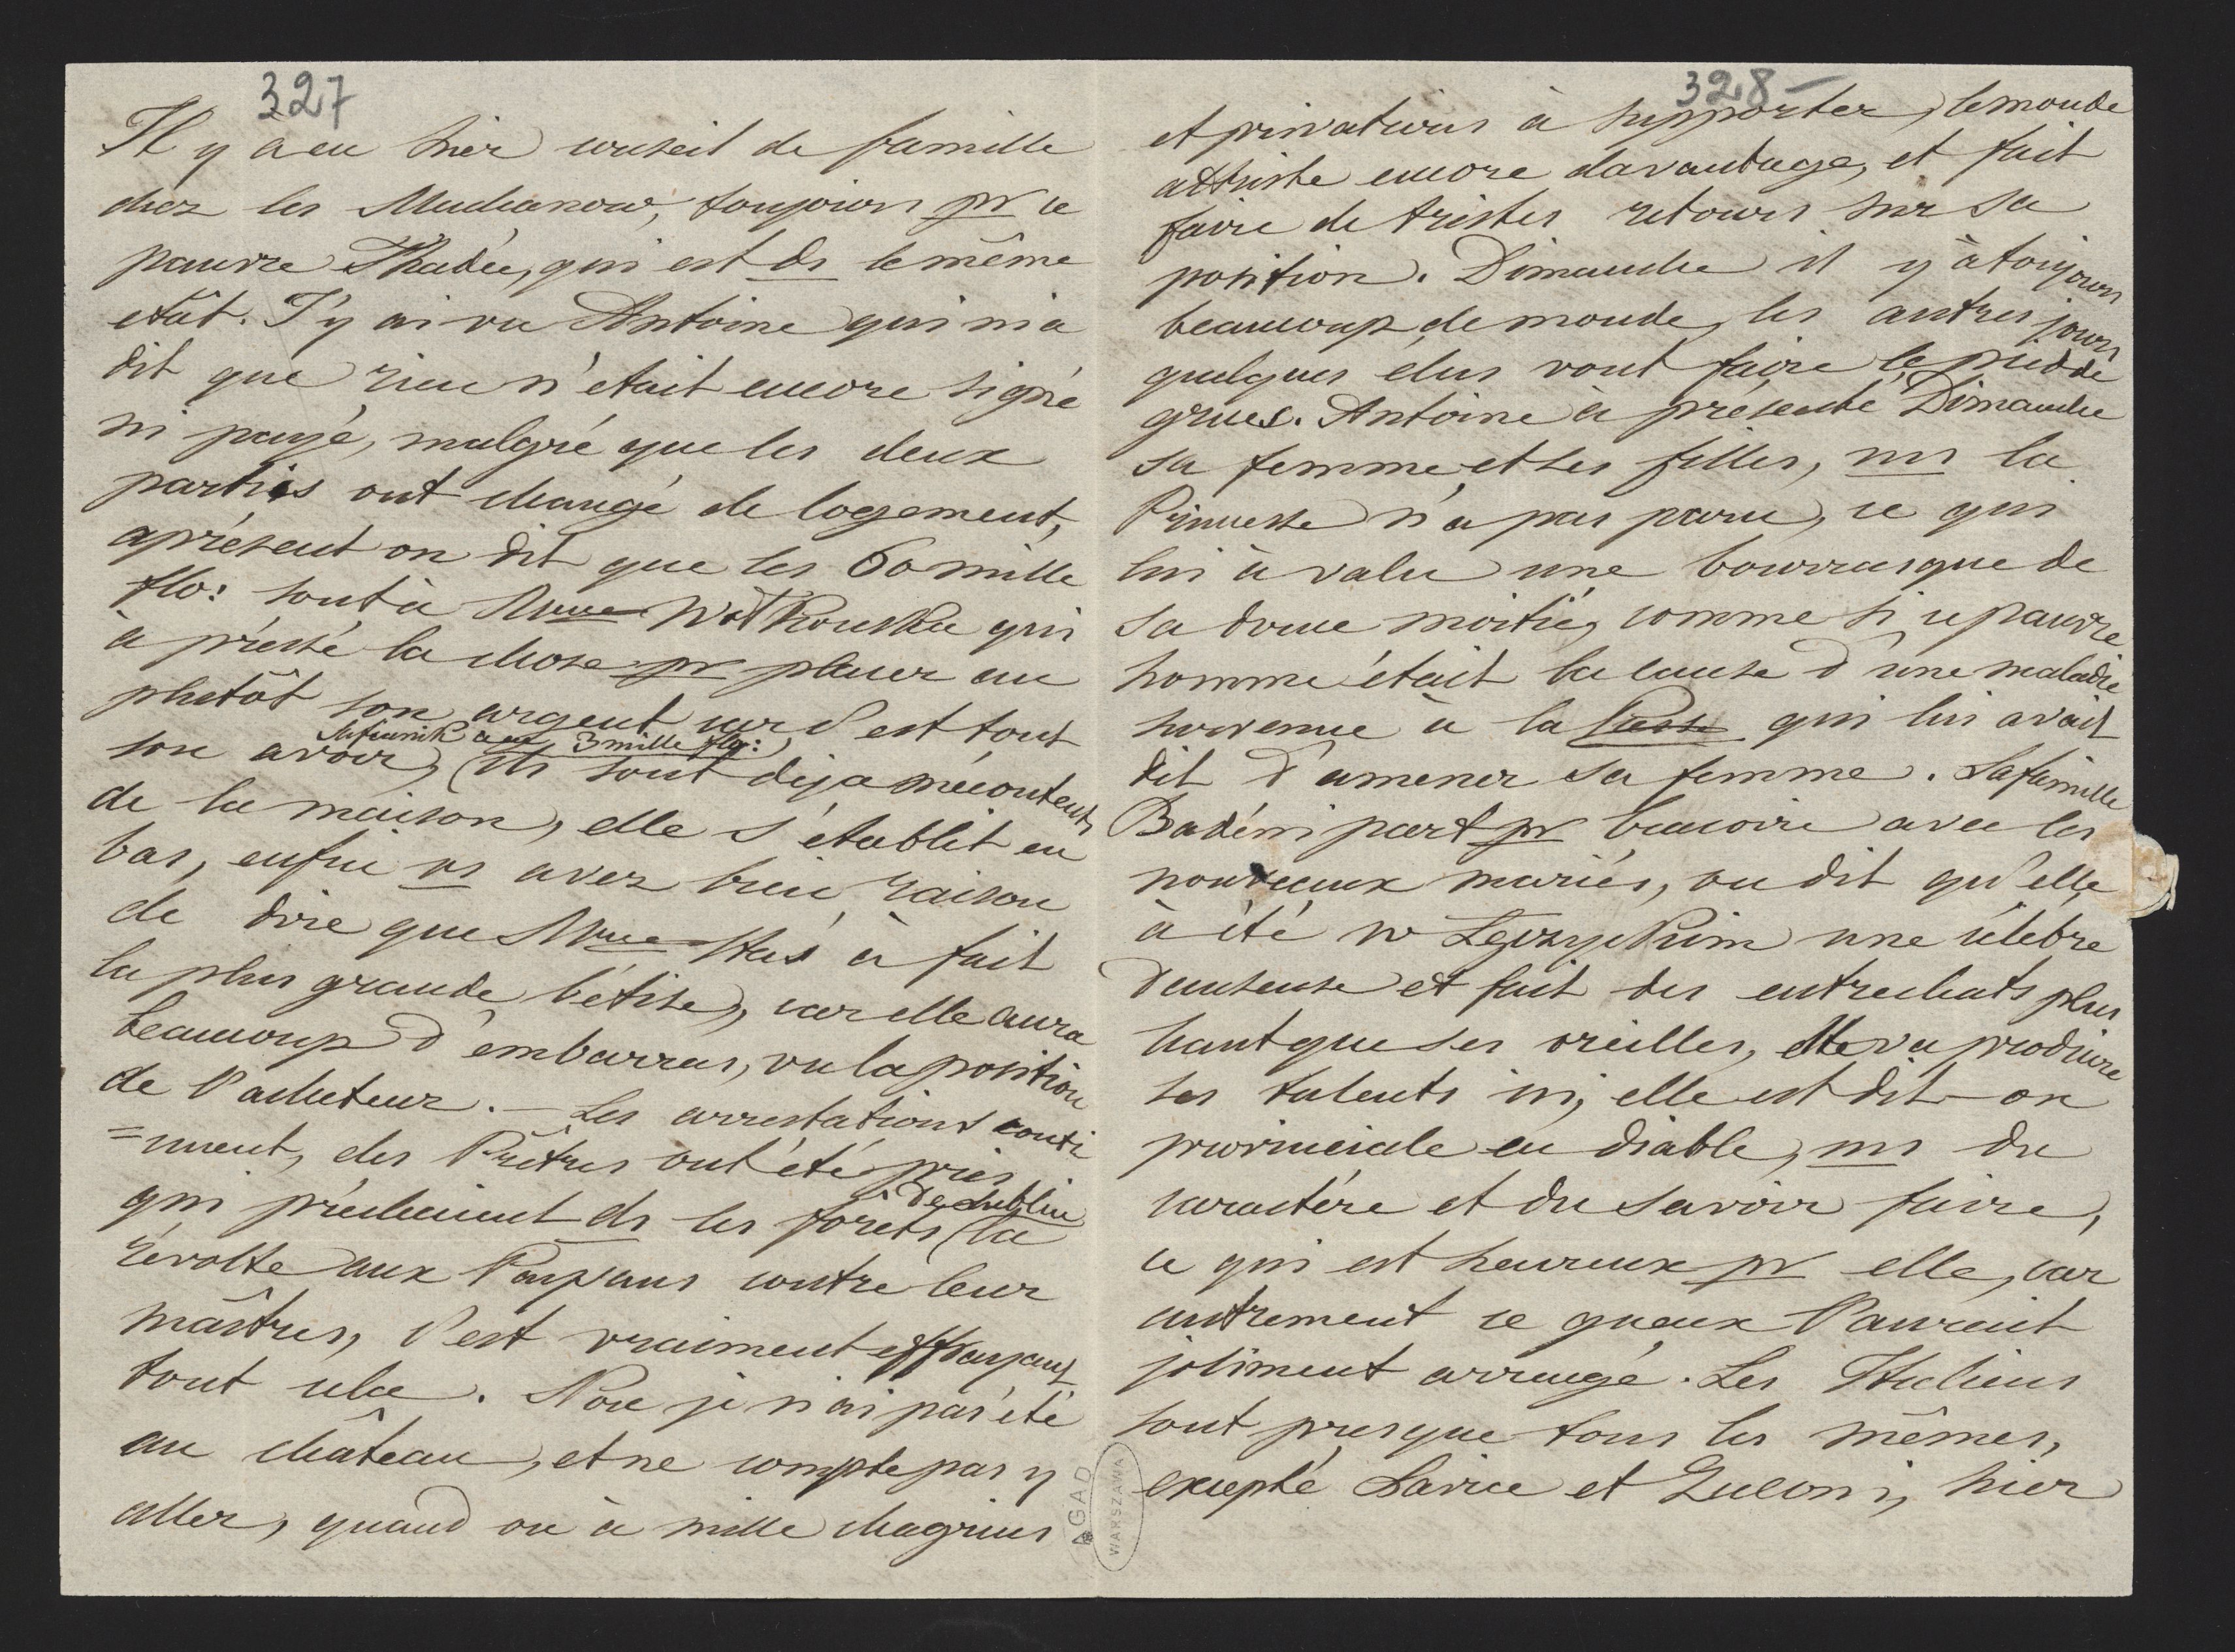 327
Il y à eu hier conseil de famille
chez les Muchanow, toujours pr ce
pauvre Thadée, qui est ds le même
etât. J'y ai vu Antoine qui m'a
dit que rien n'était encore signé
ni payé, malgré que les deux
partis ont changé de logement,
aprésent on dit que les 60 mille
flo: sont à Mme Witkouska qui
à pressé la chose pr placer au
plutôt son argent car c'est tout
son avoir, (ils sont deja mécontents
a eu 3 mille flo:
de la maison, elle s'établit en
bas, enfin vs avez bien raison
de dire que Mme Stas à fait
la plus grande bêtise, car elle aura
beaucoup d'embarras, vu la position
de l'acheteur. — Les arrestations conti
=nuent, des Prêtres ont été pris
qui prêchaient ds les forêts (la
de Lublin
révolte aux Paysans contre leur
maîtres, c'est vraiment effrayant
tout cela. Non je n'ai pas été
au château, et ne compte pas y
aller, quand on à mille chagrins
328-
et privations à supporter, le monde
attriste encore davantage, et fait
faire de tristes retours sur sa
position. Dimanche il y à toujours
beaucoup de monde, les autres jours
quelques élus vont faire le pied de
grues. Antoine à présenté Dimanche
sa femme et ses filles, ms la
Princesse n'a pas paru, ce qui
lui à valu une bourrasque de
sa douce moitié, comme si ce pauvre
homme était la cause d'une maladie
survenue à la Psse qui lui avait
dit d'amener sa femme. La famille
Badéni part pr Cracovie avec les
nouveaux mariés, on dit qu'elle
à été w Łęczyckim une célebre
danseuse et fait des entrechats plus
haut que ses oreilles, elle va produire
ses talents ici, elle est dit-on
provinciale en diable, ms du
caractére et du savoir faire,
ce qui est heureux pr elle, car
autrement ce gueux l'aurait
joliment arrangé. Les Italiens
sont presque tous les mêmes,
excepté et Zucconi, hier
AGAD
WARSZAWA